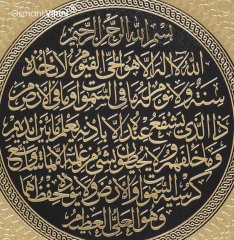 Osmanlı
بسم الله الرحمن الرحيم
الله لا اله الا هو الحي القيوم لا تأخذه
سنة ولا نوم له ما في السموات وما في الأرض من
ذا الذي يشفع عنده إلا بإذنه يعلم ما بين أيديهم
وما خلفهم ولا يحيطون بشيء من علمه إلا بما شاء وسع
كرسيه السموات والأرض ولا يؤده حفظهما
وهو العلي العظيم